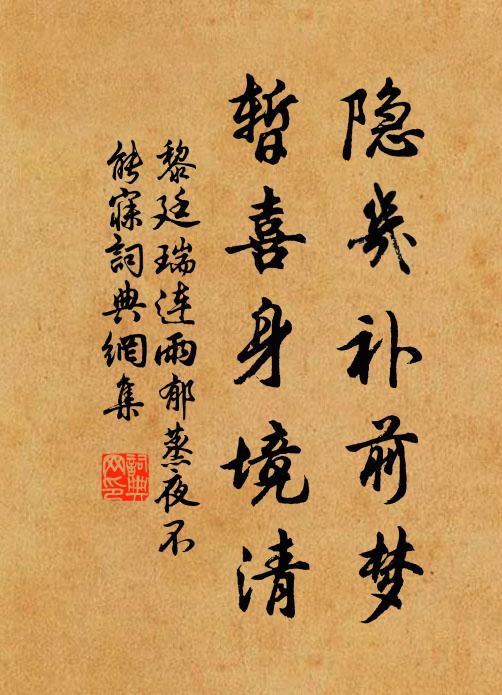 隐几补前梦
暂喜身境清
黎廷瑞连雨郁蒸夜不
能寐詞典網集
詞典
网印